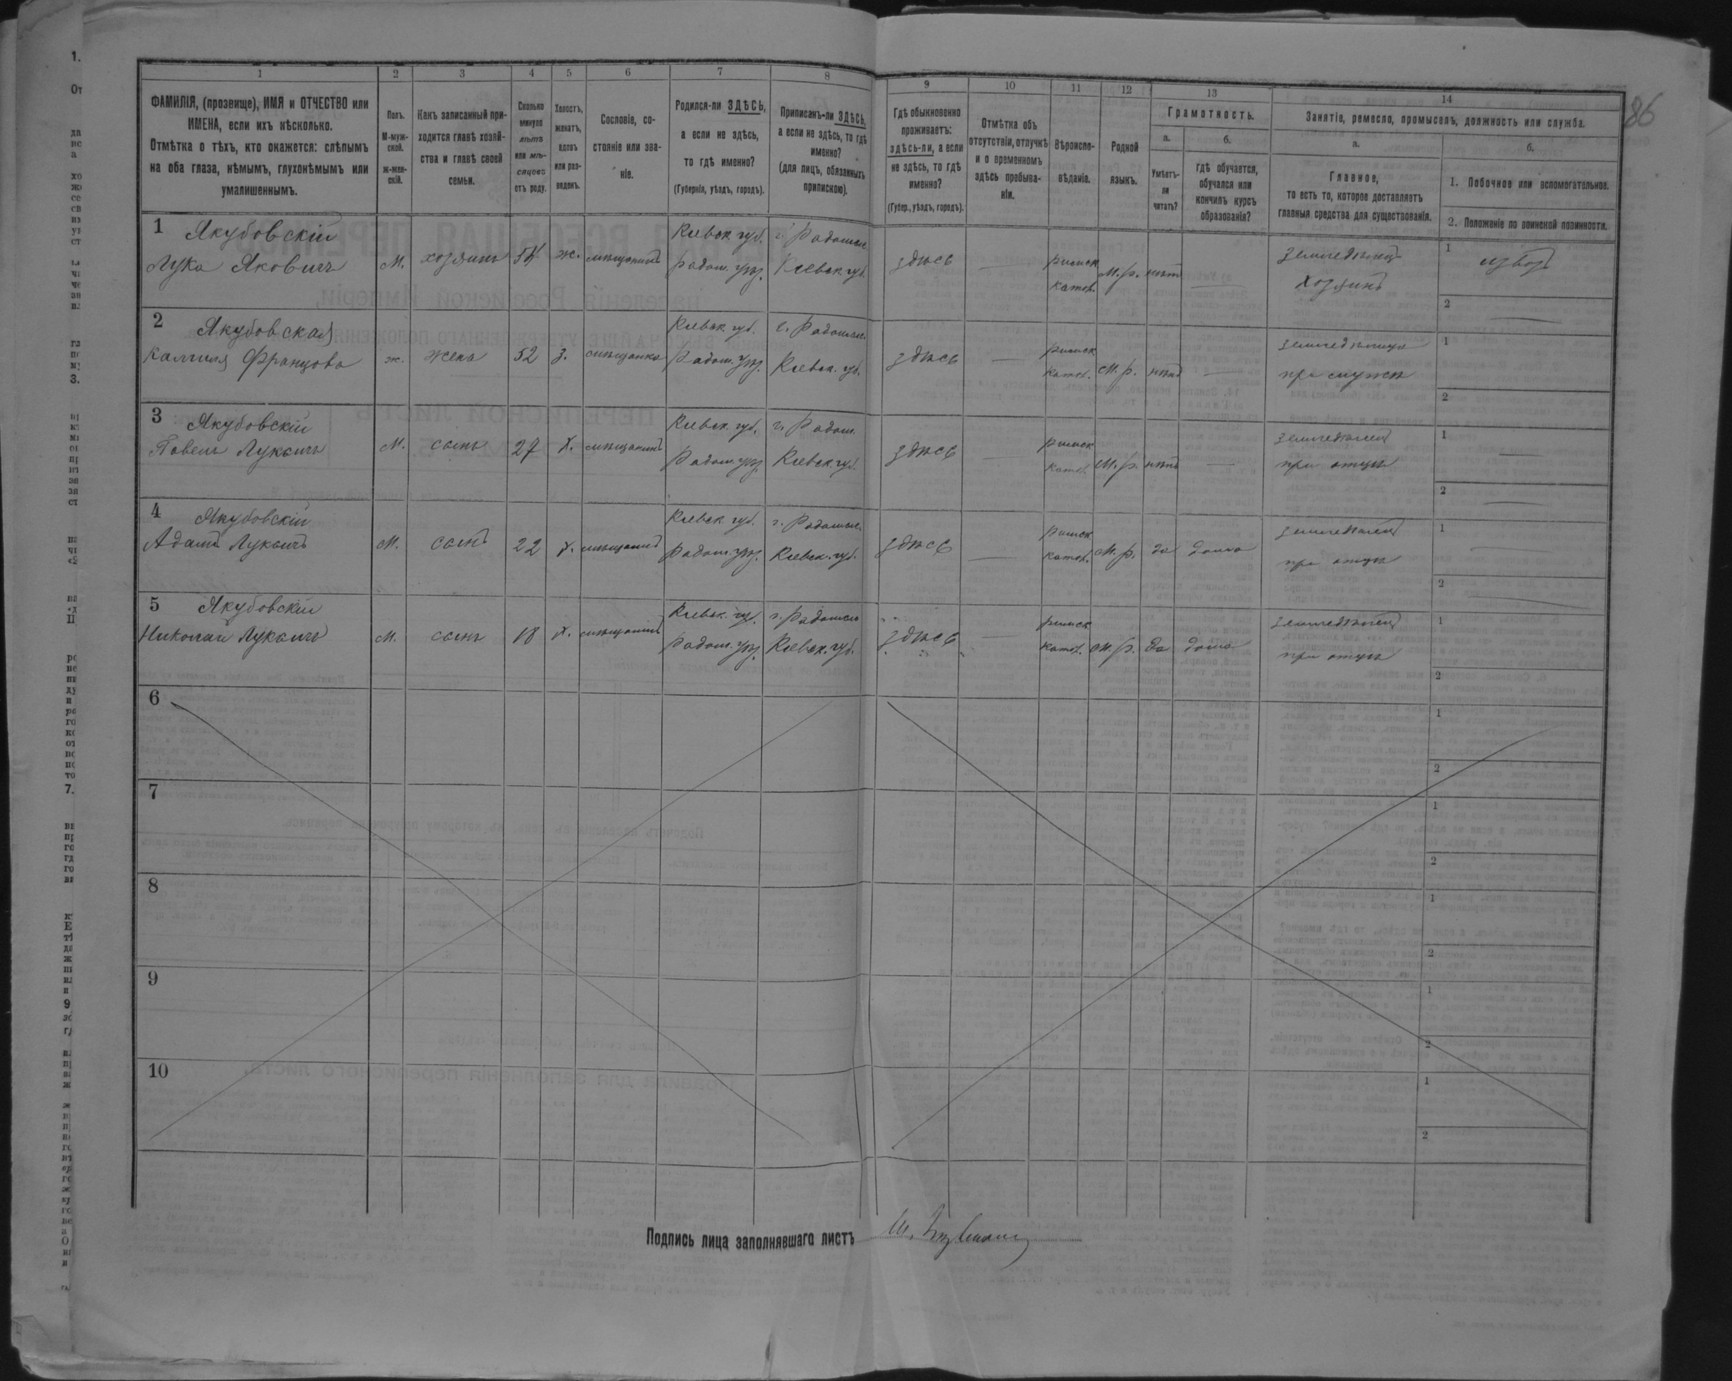 1 2 3 4 5 6 7 8 9 10 11 12 13 14
86
ФАМИЛІЯ, (прозвище), ИМЯ и ОТЧЕСТВО или
ИМЕНА, если ихъ нѣсколько.
Отмѣтка о тѣхъ, кто окажется: слѣпымъ
на оба глаза, нѣмымъ, глухонѣмымъ или
умалишеннымъ.
Полъ.
М-муж-
ской.
Ж-жен-
скій.
Какъ записанный при-
ходится главѣ хозяй-
ства и главѣ своей
семьи.
Сколько
минуло
лѣтъ
или мѣ-
сяцевъ
отъ роду.
Холостъ,
женатъ,
вдовъ
или раз-
веденъ.
Сословіе, со-
стояніе или зва-
ніе.
Родился-ли ЗДѢСЬ,
а если не здѣсь,
то гдѣ именно?
(Губернія, уѣздъ, городъ).
Приписанъ-ли ЗДѢСЬ,
а если не здѣсь, то гдѣ
именно?
(для лицъ, обязанныхъ
припискою).
Гдѣ обыкновенно
проживаетъ:
здѣсь-ли, а если
не здѣсь, то гдѣ
именно?
(Губер., уѣздъ, городъ).
Отмѣтка объ
отсутствіи, отлучкѣ
и о временномъ
здѣсь пребыва-
ніи.
Вѣроиспо-
вѣданіе.
Родной
языкъ.
Грамотность.
а.
Умѣетъ-
ли
читать?
б.
гдѣ обучается,
обучался или
кончилъ курсъ
образованія?
Занятіе, ремесло, промыселъ, должность или служба.
а.
Главное,
то есть то, которое доставляетъ
главныя средства для существованія.
б.
1. Побочное или вспомогательное.
2. Положеніе по воинской повинности.
1 Якубовскій Кіевск. губ. г. Радомысл.
Лука Яковичъ М. хозяинъ 54 ж. мѣщанинъ Радом. уѣз. Кіевск. губ. здѣсь — римск. катол. М.р. нѣтъ — земледѣлецъ хозяинъ 1 извоз 2 —
2 Якубовская Кіевск. губ. г. Радомысл.
Камиля Францова ж. жена 52 з. мѣщанка Радом. уѣз. Кіевск. губ. здѣсь — римск. катол. М.р. нѣтъ — при мужѣ 1 — 2
3 Якубовскій Кіевск. губ. г. Радом.
Павелъ Лукичъ М. сынъ 27 х. мѣщанинъ Радом. уѣз. Кіевск. губ. здѣсь — римск. катол. М.р. нѣтъ — земледѣлецъ при отцѣ 1 — 2 —
4 Якубовскій Кіевск. губ. г. Радомысл.
Адамъ Лукичъ М. сынъ 22 х. мѣщанинъ Радом. уѣз. Кіевск. губ. здѣсь — римск. катол. М.р. да дома земледѣлецъ при отцѣ 1 — 2 —
5 Якубовскій Кіевск. губ. г. Радомысл.
Николай Лукичъ М. сынъ 18 х. мѣщанинъ Радом. уѣз. Кіевск. губ. здѣсь римск. катол. М.р. да дома земледѣлецъ при отцѣ 1 2
6 1 2
7 1 2
8 1 2
9 1 2
10 1 2
Подпись лица заполнявшаго листъ